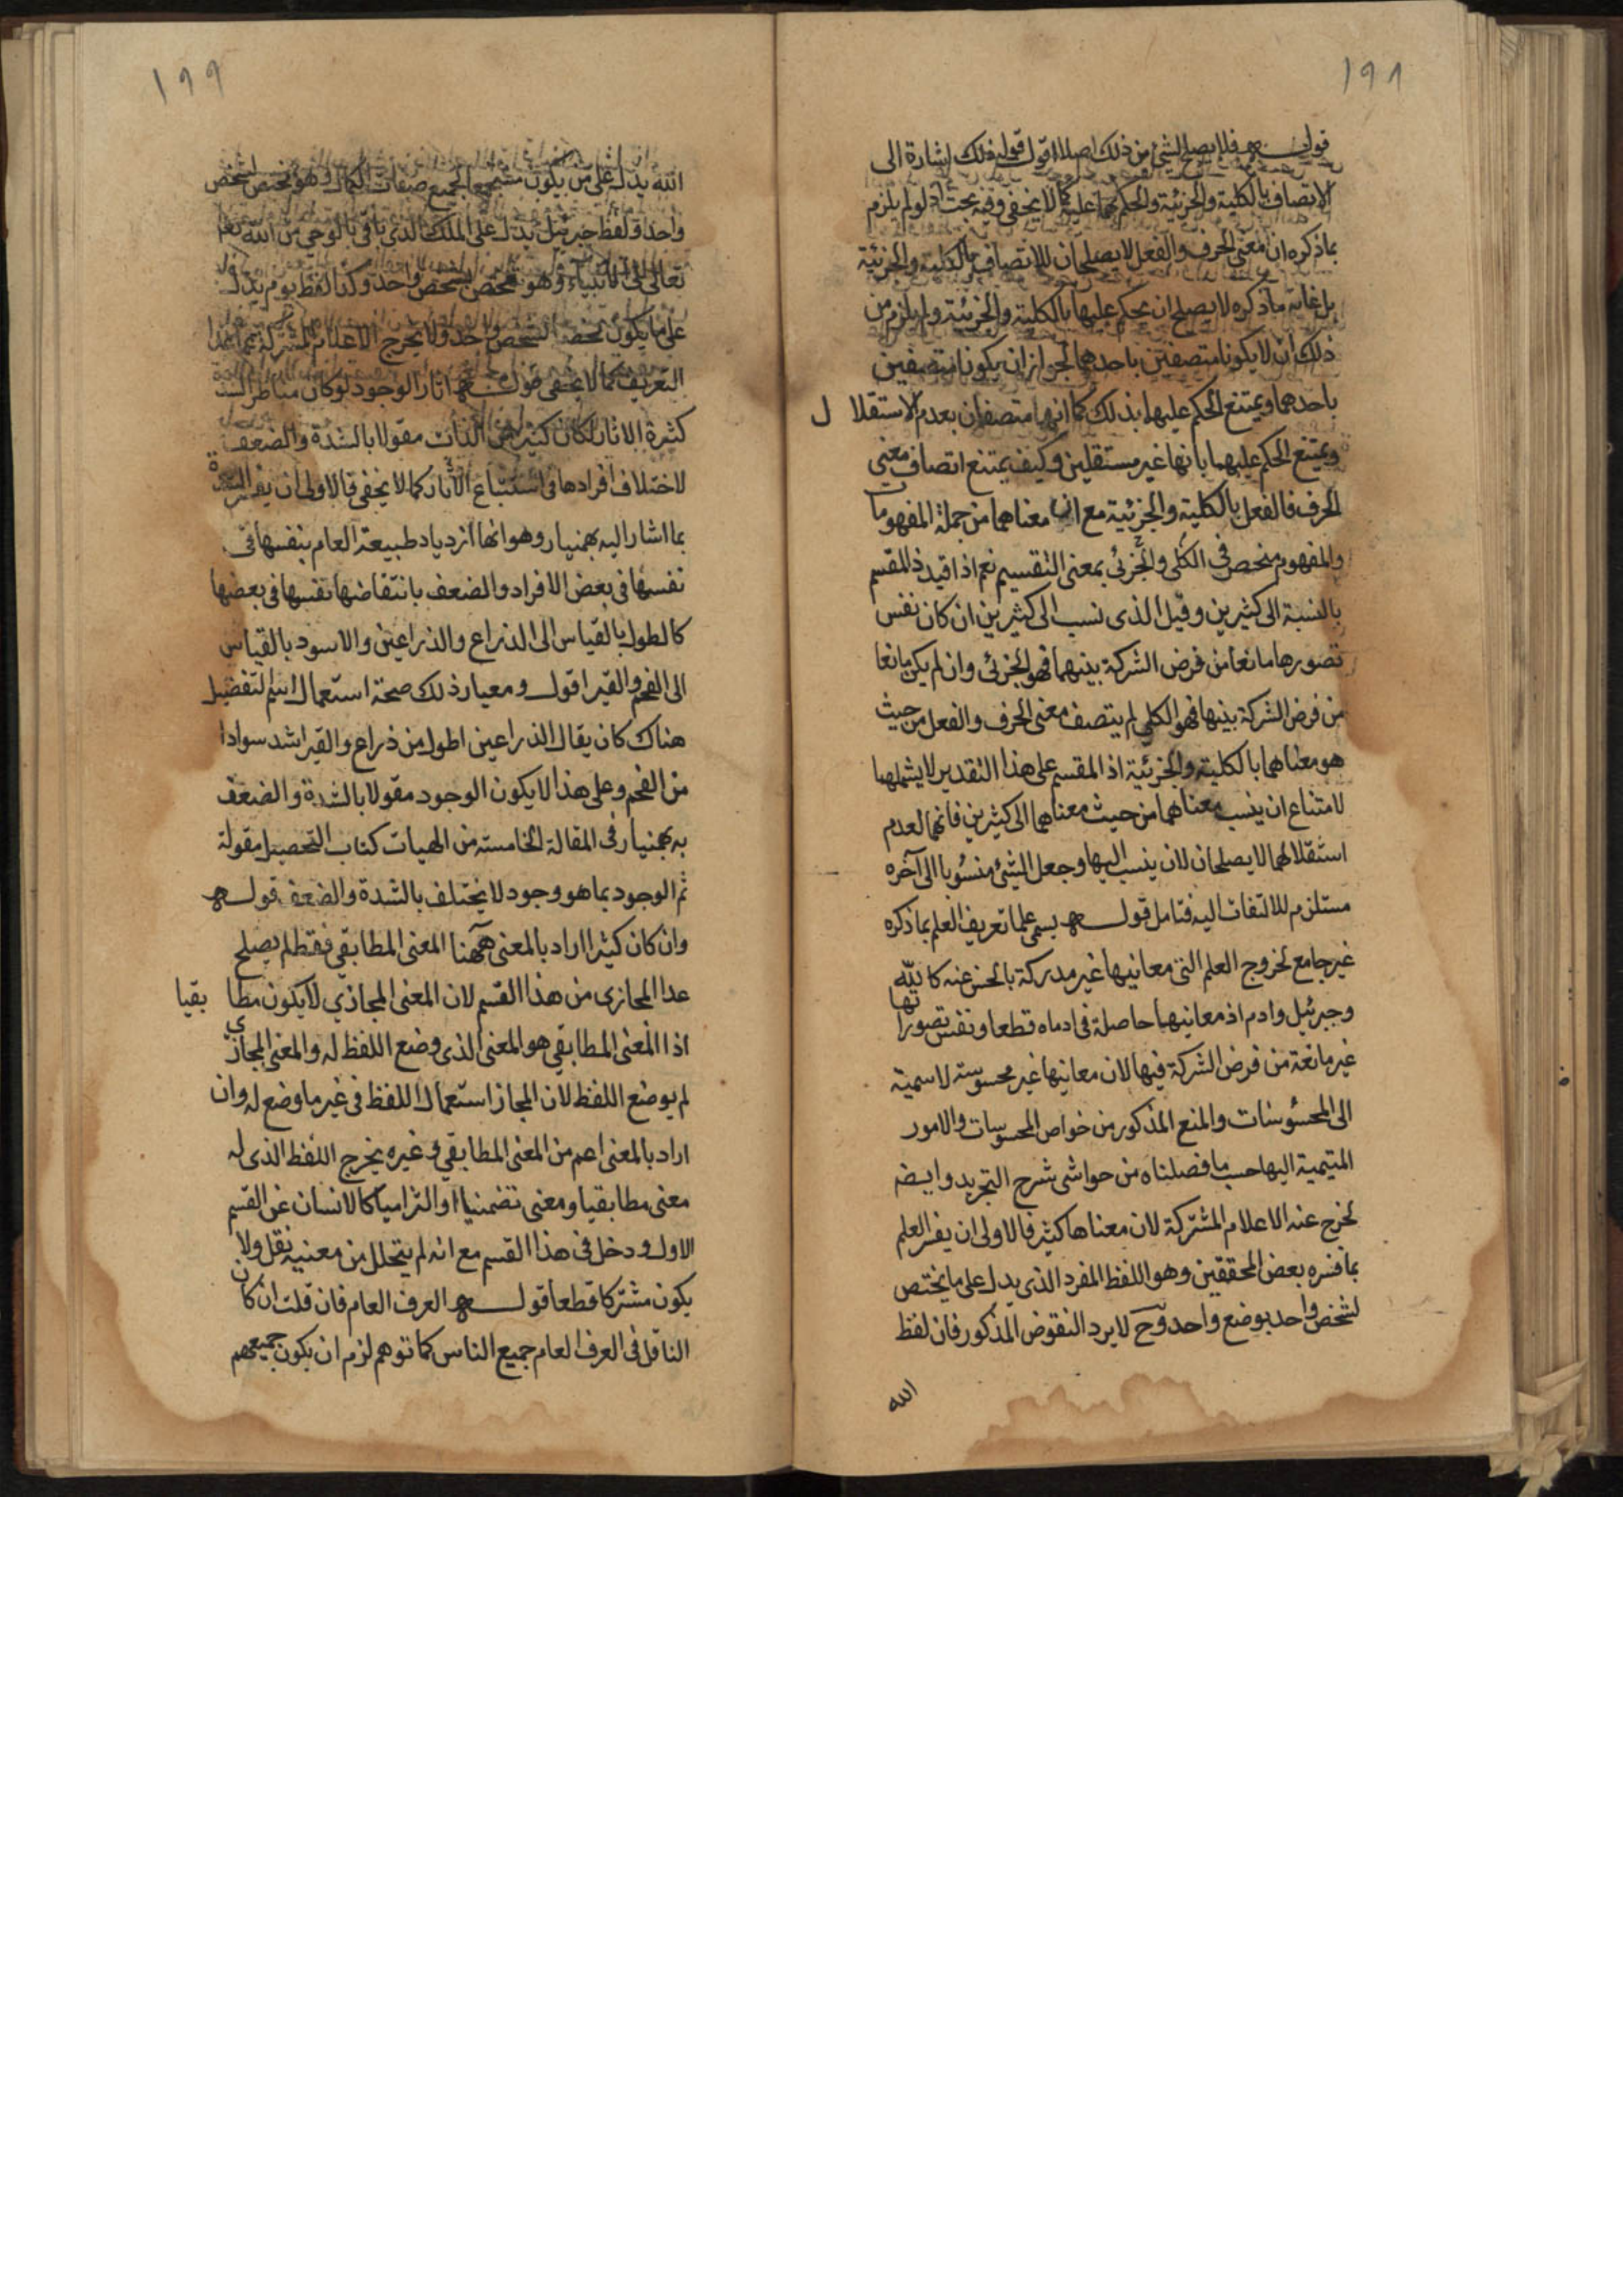 ١٩٨
قوله فلا يصلح لشئ من ذلك اصلا اقول قوله ذلك اشارة الى
الاتصاف بالكلية والجزئية والحكم بهما عليه كما لا يخفى وفيه بحث اذ لو لم يلزم
بما ذكره ان معنى الحرف والفعل لا يصلحان للاتصاف بالكلية والجزئية
بل غاية ما ذكره لا يصلح ان يحكم عليها بالكلية والجزئية ولم يلزم من
ذلك ان لا يكونا متصفين باحدهما لجواز ان يكونا متصفين
باحدهما ويمتنع الحكم عليها بذلك كما انهما متصفان بعدم الاستقلال
ويمتنع الحكم عليهما بانها غير مستقلين وكيف يمتنع اتصاف معنى
الحرف فالفعل بالكلية والجزئية مع ان معناهما من جملة المفهومات
والمفهوم منحصر في الكلى والجزئى بمعنى التقسيم نعم اذا قيد ذ المقسم
بالنسبة الى كثيرين وقيل الذى نسب الى كثيرين ان كان نفس
تصورها مانعا من فرض الشركة بينهما فهو الجزئى وان لم يكن مانعا
من فرض الشركة بينها فهو الكلي لم يتصف معنى الحرف والفعل من حيث
هو معناهما بالكلية والجزئية اذ المقسم على هذا التقدير لا يشملهما
لامتناع ان ينسب معناهما من حيث معناهما الى كثيرين فانهما لعدم
استقلالهما لا يصلحان لان ينسب اليها وجعل الشئ منسوبا الى آخره
مستلزم للالتفات اليه فتامل قوله يسمى علما تعريف العلم بما ذكره
غير جامع لخروج العلم التى معانيها غير مدركة بالحس عنه كالله
وجبرئيل وادم اذ معانيها حاصلة فى ادماه قطعا ونفس تصوراتها
غير مانعة من فرض الشركة فيها لان معانيها غير محسوسة لاسمية
الى المحسوسات والمنع المذكور من خواص المحسوسات والامور
المتيمية اليها حسب ما فصلناه من حواشى شرح التجريد وايضه
لخرج عنه الاعلام المشتركة لان معناها كثير فالاولى ان يفسر العلم
بما فسره بعض المحققين وهو اللفظ المفرد الذى يدل على ما يختص
لشخص واحد بوضع واحد وح لا يرد النقوض المذكور فان لفظ
الله
١٩٩
الله يدل على من يكون مستجمعا لجميع صفات الكمال وهو مختص لشخص
واحد ولفظ جبرئيل يدل على الملك الذي ياتى بالوحي من الله
تعالى الى الانبياء وهو مختص لشخص واحد وكذا لفظ يوم يدل
على ما يكون لشخص واحد ولا يخرج الاعلام المشتركة
التعريف كما لا يخفى قوله اثار الوجود لو كان مناط الشد
كثرة الاثار لكان كثير من الذات مقولا بالشدة والضعف
لاختلاف افرادها فى استتباع الآثار كما لا يخفى فالاولى ان يفسر الشدة
بما اشار اليه بهمنيار وهو انها ازدياد طبيعة العام بنفسها فى
نفسها فى بعض الافراد والضعف بانتقاضها نفسها فى بعضها
كالطول بالقياس الى الذراع والذراعين والاسود بالقياس
الى الفحم والقير اقول ومعيار ذلك صحة استعمال اسم التفضيل
هناك كان يقال الذراعين اطول من ذراع والقير اشد سوادا
من الفحم وعلى هذا لا يكون الوجود مقولا بالشدة والضعف
به بهمنيار فى المقالة الخامسة من الهيات كتاب التحصيل مقولة
ثم الوجود بما هو وجود لا يختلف بالشدة والضعف قوله
وان كان كثيرا اراد بالمعنى ههنا المعنى المطابقى فقط لم يصلح
عدا المجازى من هذا القسم لان المعنى المجازي لا يكون مطابقيا
اذا المعنى المطابقى هو المعنى الذى وضع اللفظ له والمعنى المجازي
لم يوضع اللفظ لان المجاز استعمال اللفظ فى غير ما وضع له وان
اراد بالمعنى اعم من المعنى المطابقي وغيره يخرج اللفظ الذى له
معنى مطابقيا ومعنى تضمنيا او التزاميا كالانسان عن القسم
الاول ودخل فى هذا القسم مع انه لم يتخلل من معنييه نقل ولا
يكون مشتركا قطعا قوله العرف العام فان قلت ان كان
الناقل فى العرف العام جميع الناس كما توهم لزم ان يكون جميعهم